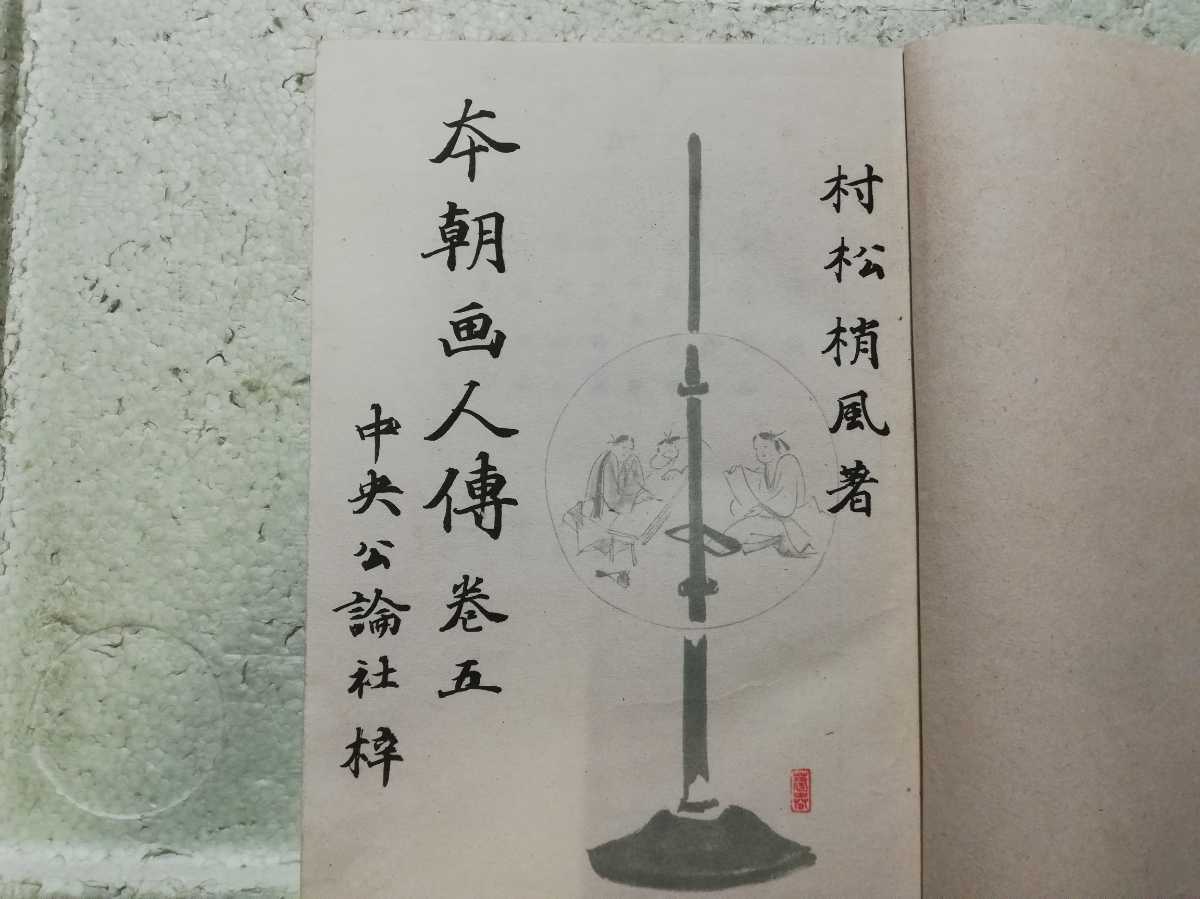 村松梢風著
本朝画人傳 卷五
中央公論社梓